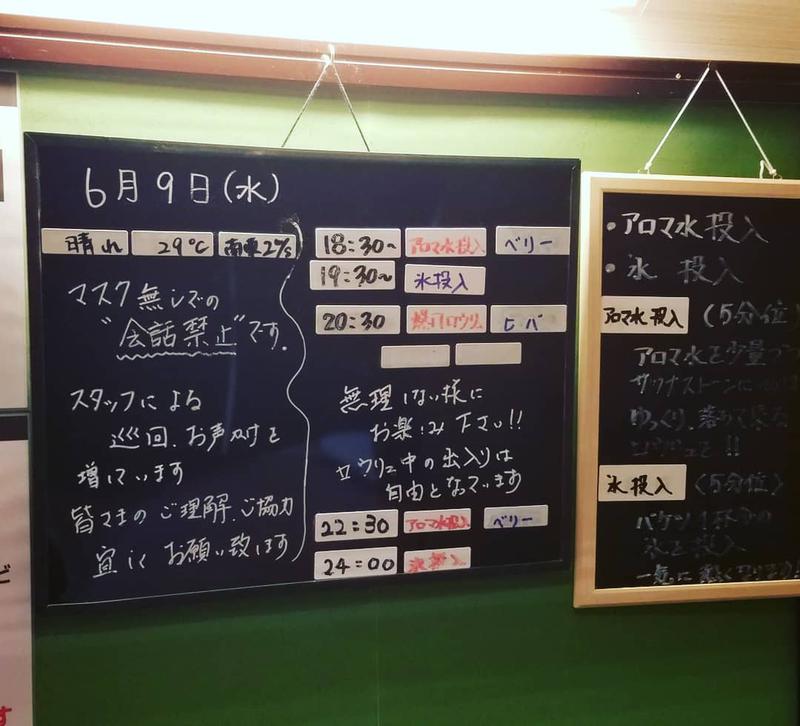 6月9日(水)
晴れ 29℃ 南東2㎧
マスク無しでの
"会話禁止"です。
スタッフによる
巡回、お声がけを
増しています
皆さまのご理解、ご協力
宜しくお願い致します
18:30~ アロマ水投入 ベリー
19:30~ 氷投入
20:30 爆風ロウリュ ヒバ
無理しない様に
お楽しみ下さい!!
ロウリュ中の出入りは
自由となっています
22:30 アロマ水投入 ベリー
24:00 氷投入
・アロマ水投入
・氷 投入
アロマ水投入 (5分位)
アロマ水を少量づつ
サウナストーンに
ゆっくり、落ちて来る
ロウリュです!!
氷投入 (5分位)
バケツ1杯分の
氷を投入
一気に熱くなります!
ど
す